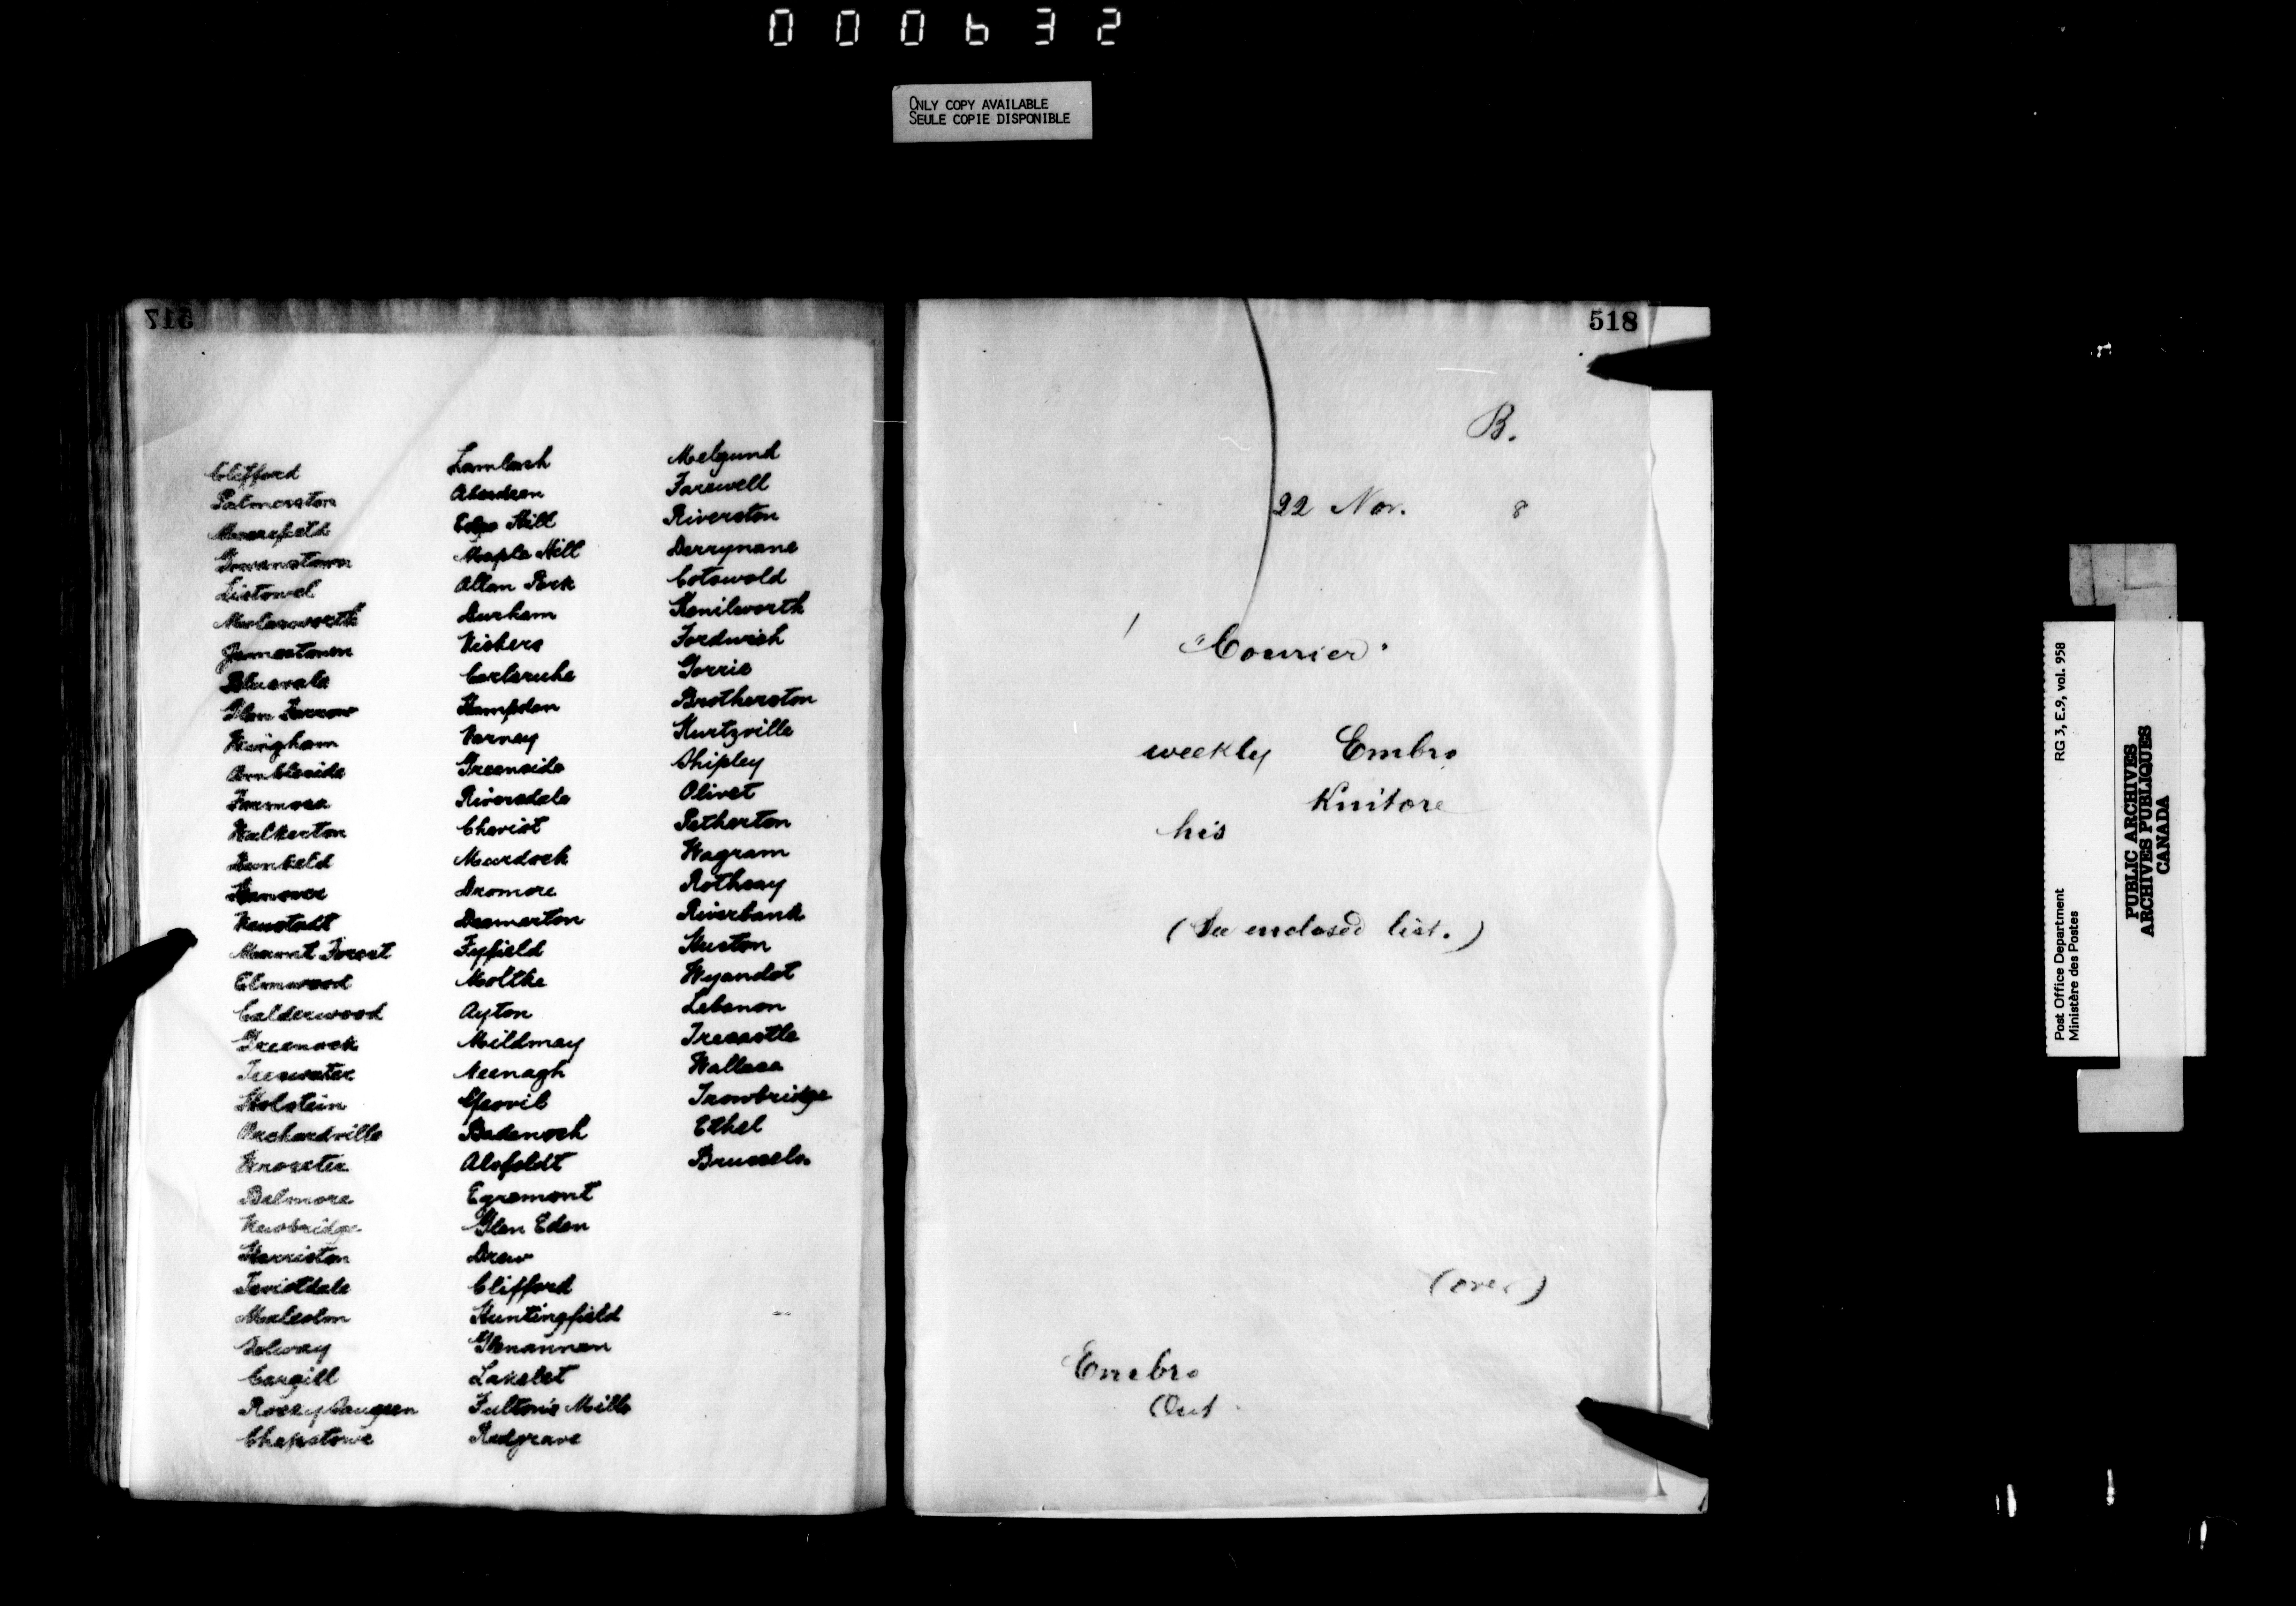 000632
ONLY COPY AVAILABLE
SEULE COPIE DISPONIBLE
517
Clifford
Palmerston
Moorefield
Gowanstown
Listowel
Molesworth
Jamestown
Bluevale
Glen Farrow
Wingham
Ambleside
Formosa
Walkerton
Dunkeld
Hanover
Neustadt
Mount Forest
Elmwood
Calderwood
Greenock
Teeswater
Holstein
Orchardville
Wroxeter
Belmore
Newbridge
Harriston
Teviotdale
Malcolm
Solway
Cargill
Rocky Saugeen
Chepstowe
Lamlash
Aberdeen
Edge Hill
Maple Hill
Allan Park
Durham
Vickers
Carlsruhe
Hampden
Varney
Greenside
Riversdale
Cheviot
Murdoch
Dromore
Deemerton
Fyfield
Moltke
Ayton
Mildmay
Neenagh
Yeovil
Badenoch
Alsfeldt
Egremont
Glen Eden
Drew
Clifford
Huntingfield
Glenannan
Lakelet
Fulton's Mills
Redgrave
Melgund
Farewell
Riverston
Derrynane
Cotswold
Kenilworth
Fordwich
Gorrie
Brotherston
Kurtzville
Shipley
Olivet
Petherton
Wagram
Rothsay
Riverbank
Huston
Wyandot
Lebanon
Trecastle
Wallace
Trowbridge
Ethel
Brussels.
518
B.
22 Nov. 8
"Courier"
weekly Embro
his
(See enclosed list.)
(over)
Embro
Ont
Post Office Department RG 3, E.9, vol. 958
Ministère des Postes
PUBLIC ARCHIVES
ARCHIVES PUBLIQUES
CANADA